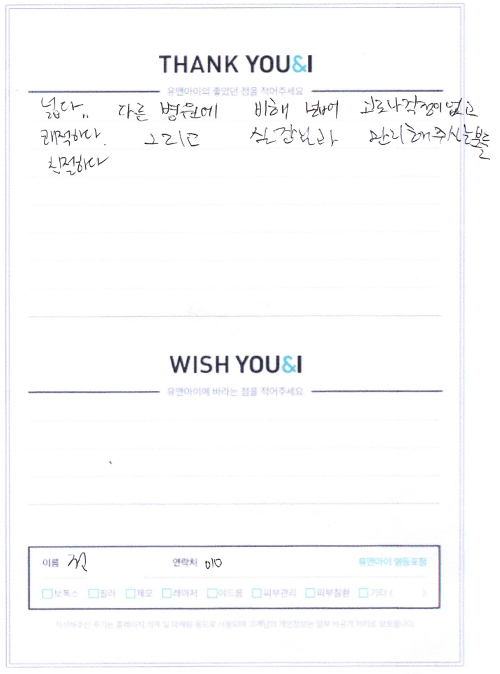 THANK YOU&I
유앤아이의 좋았던 점을 적어주세요
넓다.. 다른 병원에 비해 넓어 코로나 걱정이 없고
쾌적하다. 그리고 실장님과 관리해주시는분들
친절하다
WISH YOU&I
유앤아이에 바라는 점을 적어주세요
이름 연락처 010 유앤아이 영등포점
보톡스 필러 제모 레이저 여드름 피부관리 피부질환 기타 ( )